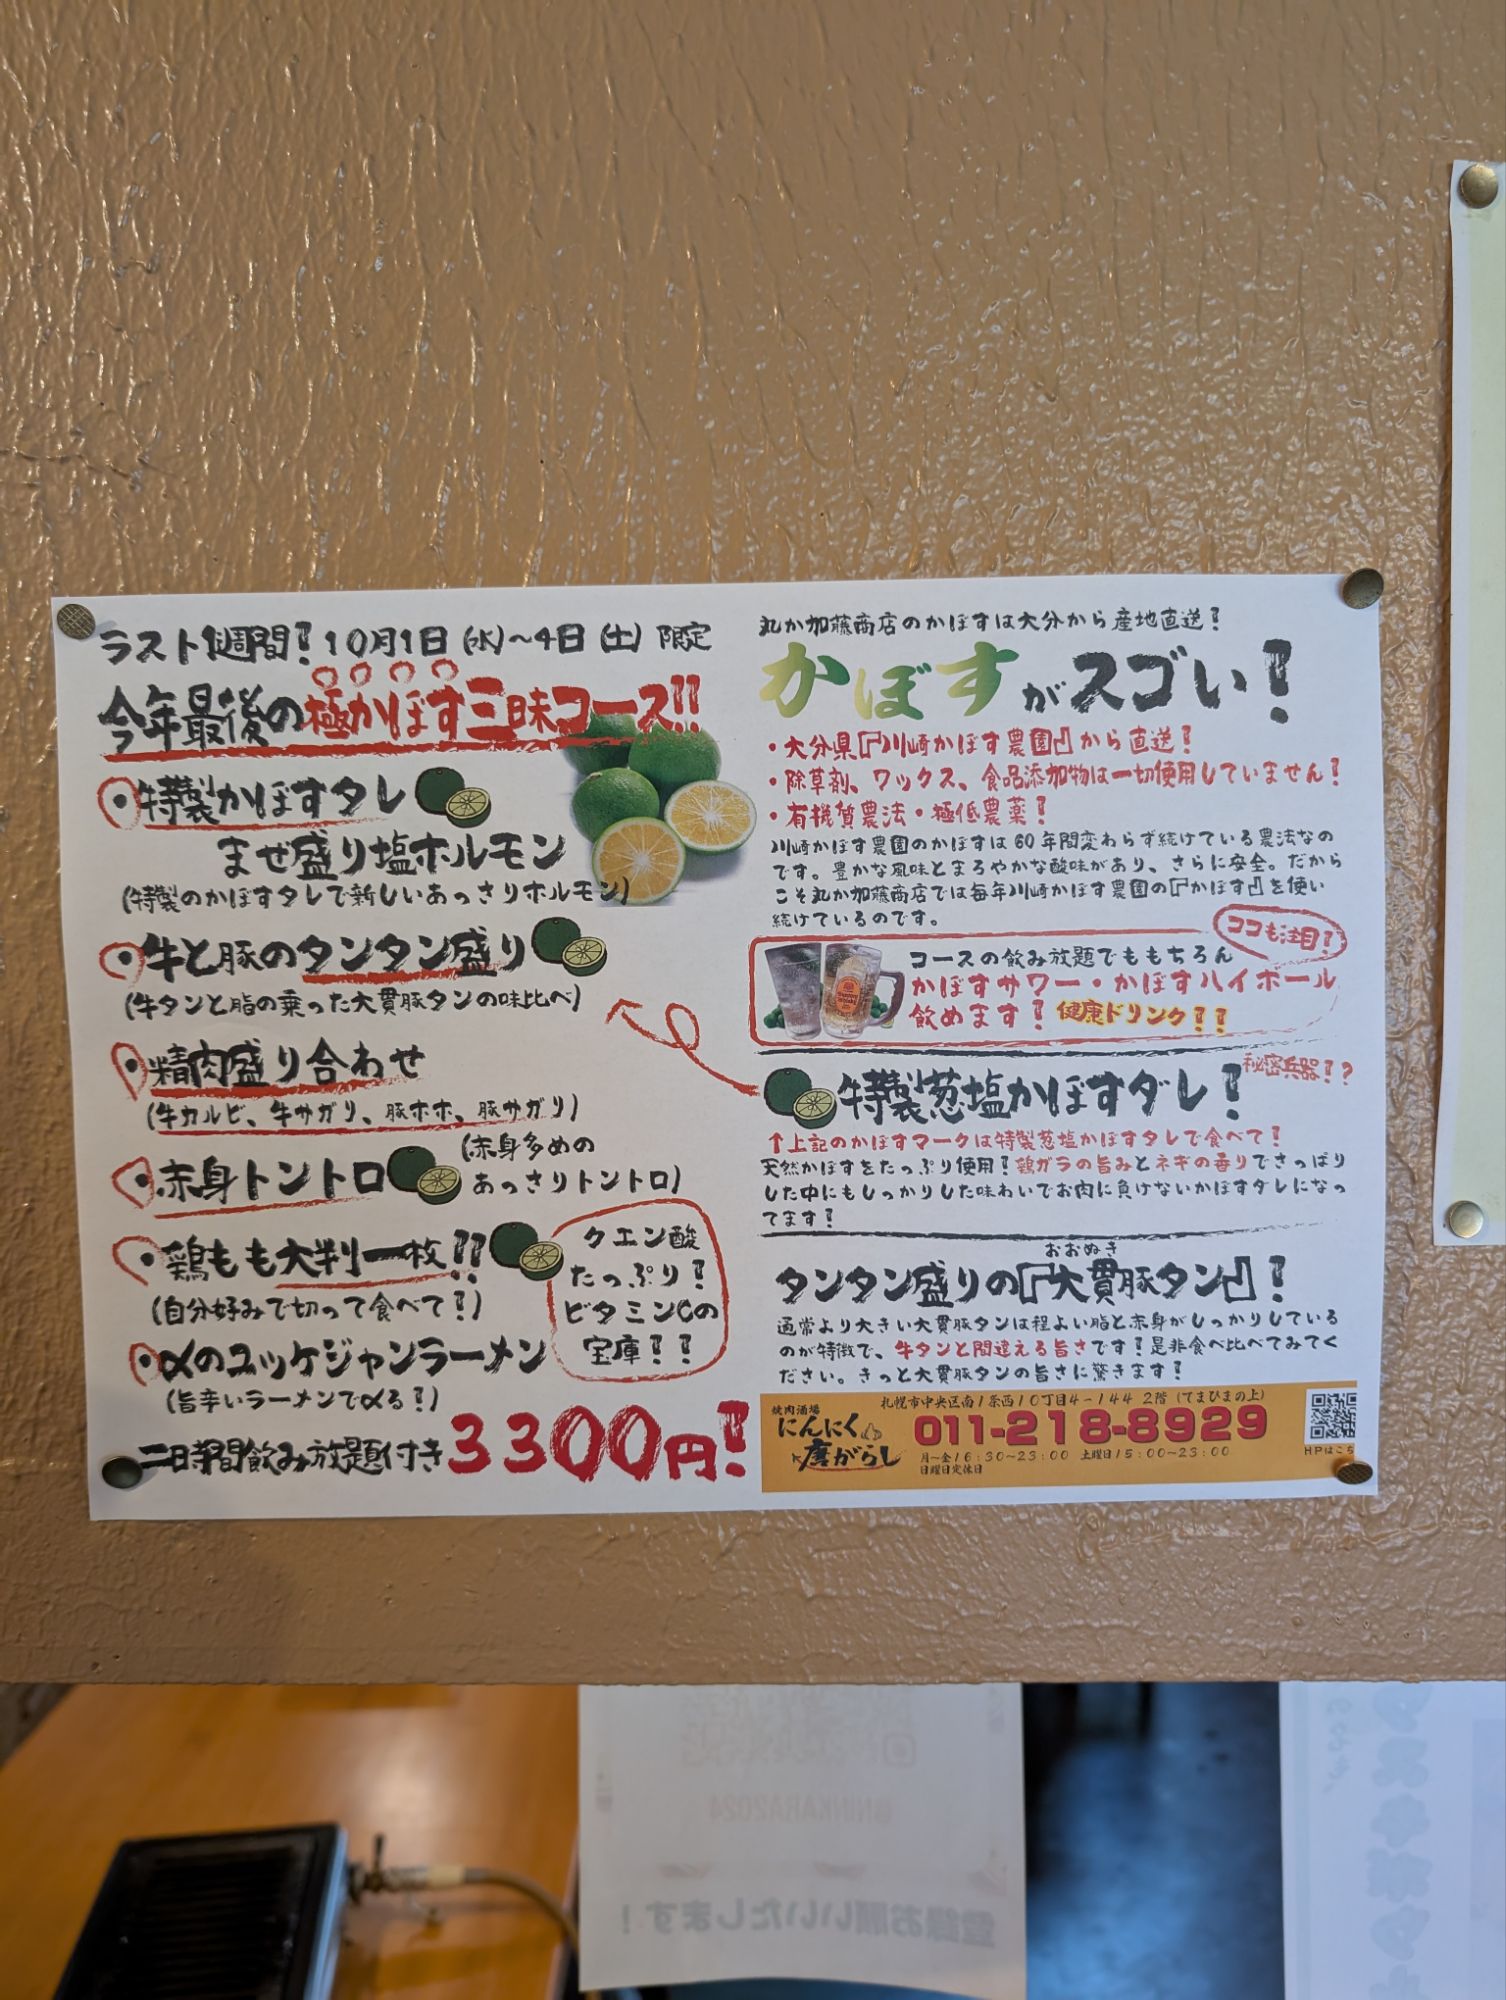 ラスト1週間！10月1日(水)～4日(土)限定
今年最後の極かぼす三昧コース!!
・特製かぼすタレ
まぜ盛り塩ホルモン
(特製のかぼすタレで新しいあっさりホルモン)
・牛と豚のタンタン盛り
(牛タンと脂の乗った大貫豚タンの味比べ)
・精肉盛り合わせ
(牛カルビ、牛サガリ、豚ホホ、豚サガリ)
・赤身トントロ
(赤身多めの
あっさりトントロ)
・鶏もも大判一枚!!
(自分好みで切って食べて！)
クエン酸
たっぷり！
ビタミンCの
宝庫！！
・〆のユッケジャンラーメン
(旨辛いラーメンで〆る！)
二時間飲み放題付き3300円！
丸か加藤商店のかぼすは大分から産地直送！
かぼすがスゴい！
・大分県『川崎かぼす農園』から直送！
・除草剤、ワックス、食品添加物は一切使用していません！
・有機質農法・極低農薬！
川崎かぼす農園のかぼすは60年間変わらず続けている農法なの
です。豊かな風味とまろやかな酸味があり、さらに安全。だから
こそ丸か加藤商店では毎年川崎かぼす農園の『かぼす』を使い
続けているのです。
ココも注目！
コースの飲み放題でももちろん
かぼすサワー・かぼすハイボール
飲めます！健康ドリンク！！
秘密兵器！？
特製葱塩かぼすダレ！
↑上記のかぼすマークは特製葱塩かぼすダレで食べて！
天然かぼすをたっぷり使用！鶏ガラの旨みとネギの香りでさっぱり
した中にもしっかりした味わいでお肉に負けないかぼすダレになっ
てます！
おおぬき
タンタン盛りの『大貫豚タン』！
通常より大きい大貫豚タンは程よい脂と赤身がしっかりしている
のが特徴で、牛タンと間違える旨さです！是非食べ比べてみてく
ださい。きっと大貫豚タンの旨さに驚きます！
焼肉酒場
にんにく
唐がらし
札幌市中央区南1条西10丁目4-144 2階(てまひまの上)
011-218-8929
月～金16:30～23:00 土曜日15:00～23:00
日曜日定休日
HPはこち
@NINKARA2024
登録お願いいたします！